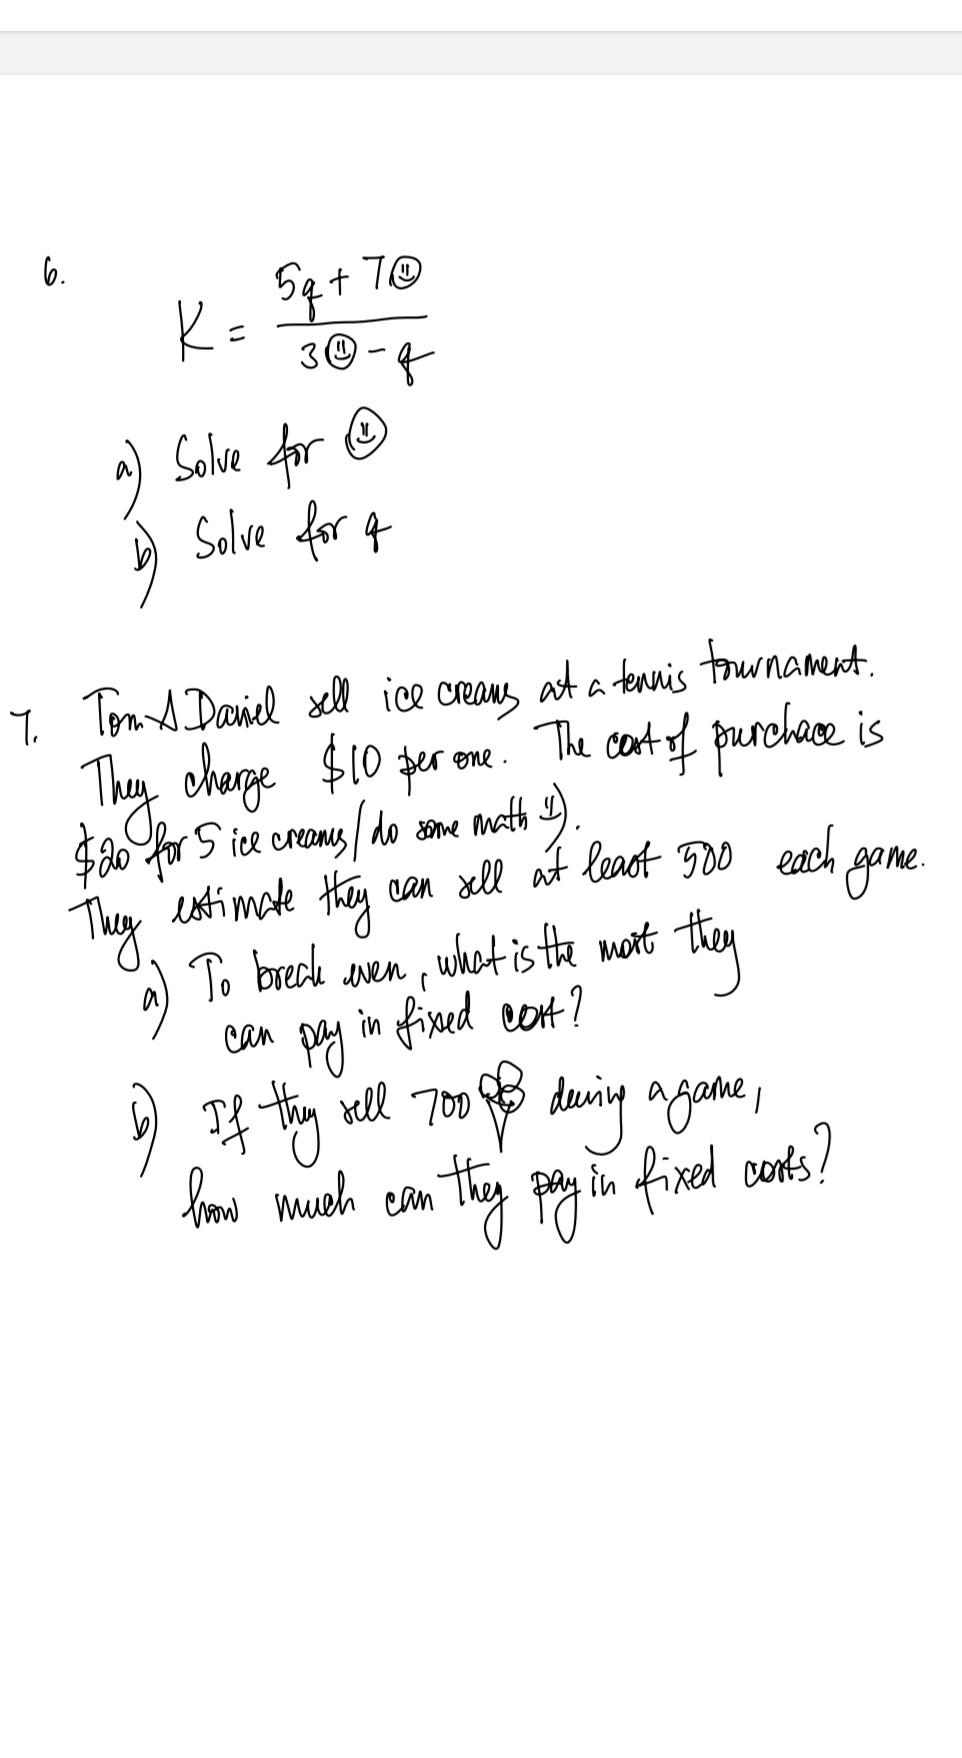 6.
K = (5q + 7☺)/(3☺ - q)
a) Solve for ☺
b) Solve for q
7. Tom & Daniel sell ice creams at a tennis tournament.
They charge $10 per one. The cost of purchace is
$20 for 5 ice creams (do some math ü).
They estimate they can sell at least 500 each game.
a) To break even, what is the most they
can pay in fixed cost?
b) If they sell 700 🍦 during a game,
how much can they pay in fixed costs?